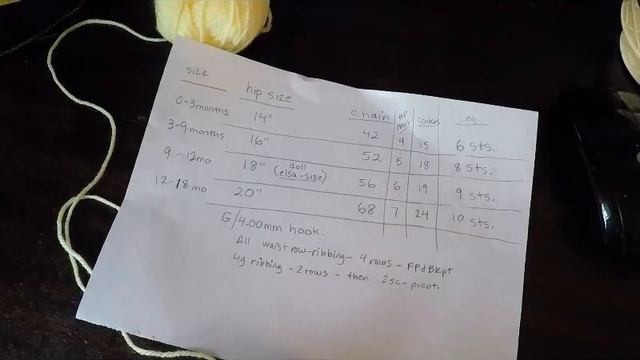 size hip size chain HP rows centers Leg
0-3months 14" 42 4 15 6 sts.
3-9months 16" 52 5 18 8 sts.
9-12mo 18" doll (elsa-size) 56 6 19 9 sts.
12-18mo 20" 68 7 24 10 sts.
G/4.00mm hook.
All waist row-ribbing- 4 rows - FPdBkpt
leg ribbing - 2 rows - then 2sc-picot.